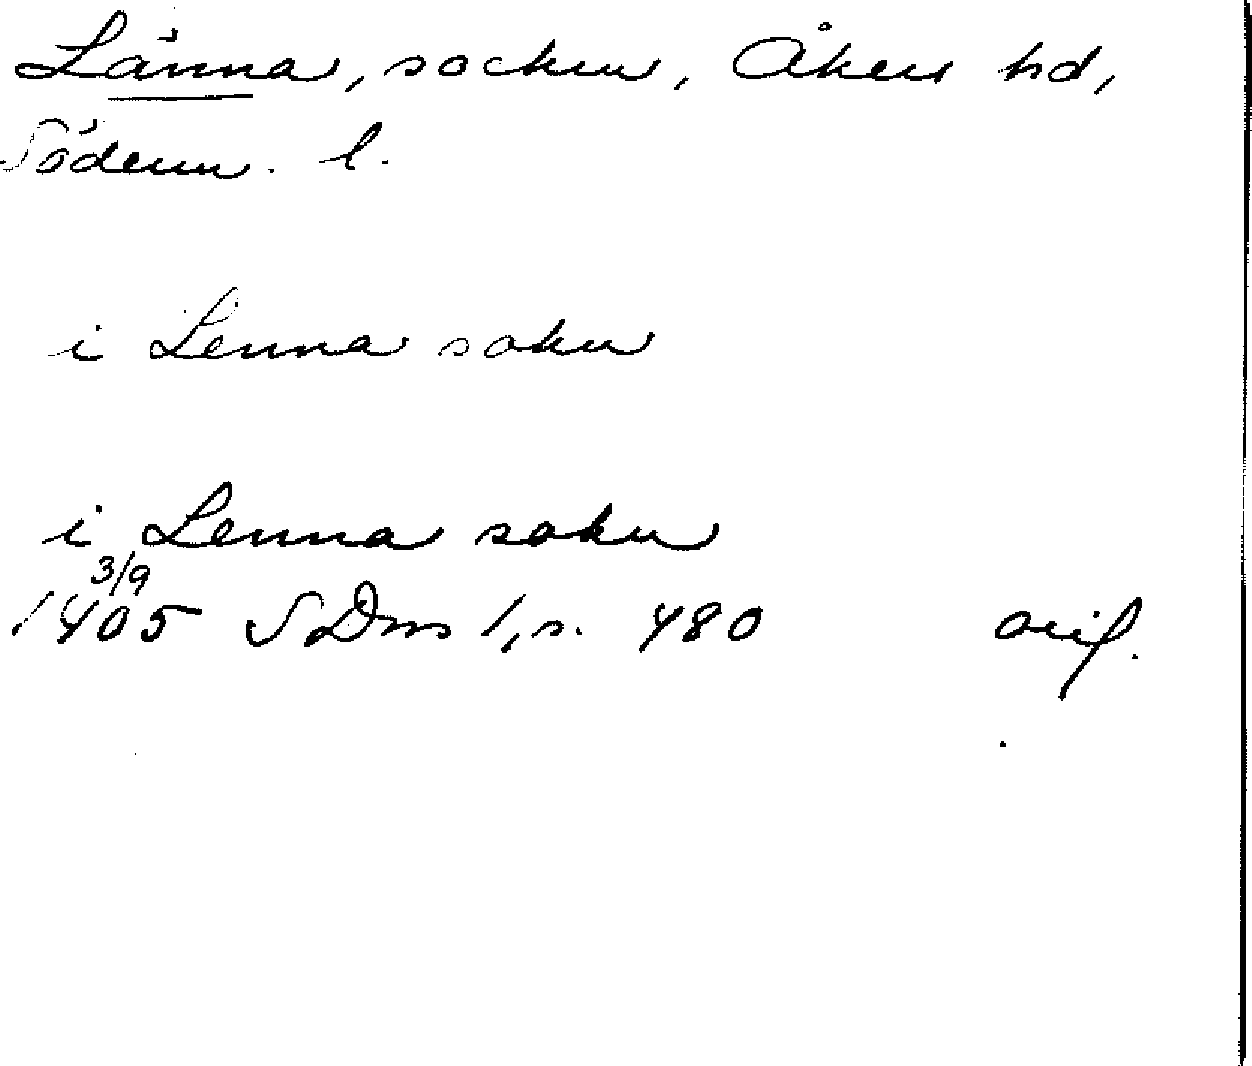 Länna, socken, Åkers hd,
Söderm. l.
i Lenna sokn
i Lenna sokn
3/9
1405 SvDns 1, s. 480 orig.